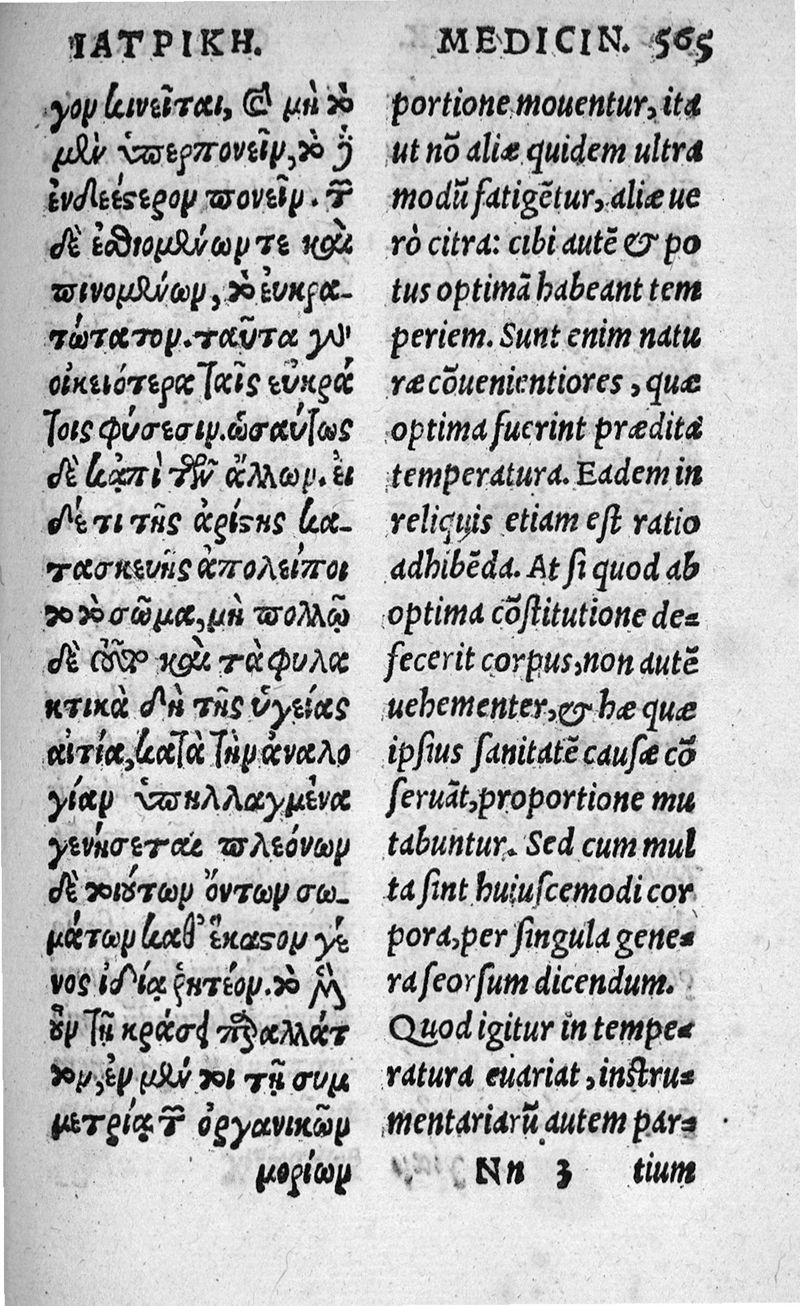 ΙΑΤΡΙΚΗ.
γον κινεῖται, καὶ μὴ τὸ
μὲν ὑπερπονεῖν, τὸ δ'
ἐνδεέστερον πονεῖν. τῶν
δὲ ἐσθιομένων τε καὶ
πινομένων, τὸ εὐκρα-
τώτατον. ταῦτα γὰρ
οἰκειότερα ταῖς εὐκρά
τοις φύσεσιν. ὡσαύτως
δὲ κἀπὶ τῶν ἄλλων. εἰ
δέ τι τῆς ἀρίστης κα-
τασκευῆς ἀπολείποι
τὸ σῶμα, μὴ πολλῷ
δὲ καὶ τὰ φυλα
κτικὰ δὴ τῆς ὑγείας
αἰτία, κατὰ τὴν ἀναλο
γίαν ὑπηλλαγμένα
γενήσεται πλεόνων
δὲ τοιούτων ὄντων σω-
μάτων καθ' ἕκαστον γέ
νος ἰδίᾳ ῥητέον. τὸ μὲν
οὖν τῇ κράσει παραλλάτ
τον, ἐν μὲν τοι τῇ συμ
μετρίᾳ τῶν ὀργανικῶν
μορίων
MEDICIN. 565
portione mouentur, ita
ut nō aliæ quidem ultra
modū fatigētur, aliæ ue
rò citra: cibi autē & po
tus optimā habeant tem
periem. Sunt enim natu
ræ cōuenientiores, quæ
optima fuerint prædita
temperatura. Eadem in
reliquis etiam est ratio
adhibēda. At si quod ab
optima cōstitutione de-
fecerit corpus, non autē
uehementer, & hæ quæ
ipsius sanitatē causæ cō
seruāt, proportione mu
tabuntur. Sed cum mul
ta sint huiuscemodi cor
pora, per singula gene-
ra seorsum dicendum.
Quod igitur in tempe-
ratura euariat, instru-
mentariarū autem par-
Nn 3 tium